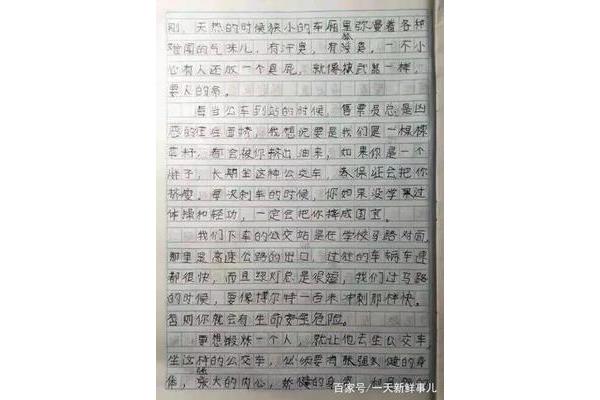 刚。天热的时候狭小的车厢里弥漫着各种
难闻的气味儿，有汗臭，有 臭，一不小
心有人还放一个臭屁，就像核武器一样，
要人的命。
每当公车到站的时候，售票员总是凶
恶的往 面挤，我想说要是我们是一棵棵
菜籽，都会被你挤出油来，如果你是一个
胖子，长期坐这种公交车，我保证会把你
挤瘦。每次刹车的时候，你如果没学果过
体操和轻功，一定会把你摔成国宝。
我们下车的公交站是在学校马路对面，
那里是高速公路的出口，过往的车辆车速
都很快，而且绿灯总是很短，我们过马路
的时候，要像博尔特一百米冲刺那样快。
否则你就会有生命安全危险。
要想锻炼一个人，就让他去坐公交车
坐这种的公交车，必须要有张强 健的身
体，强大的内心，矫健的身
百家号/一天新鲜事儿